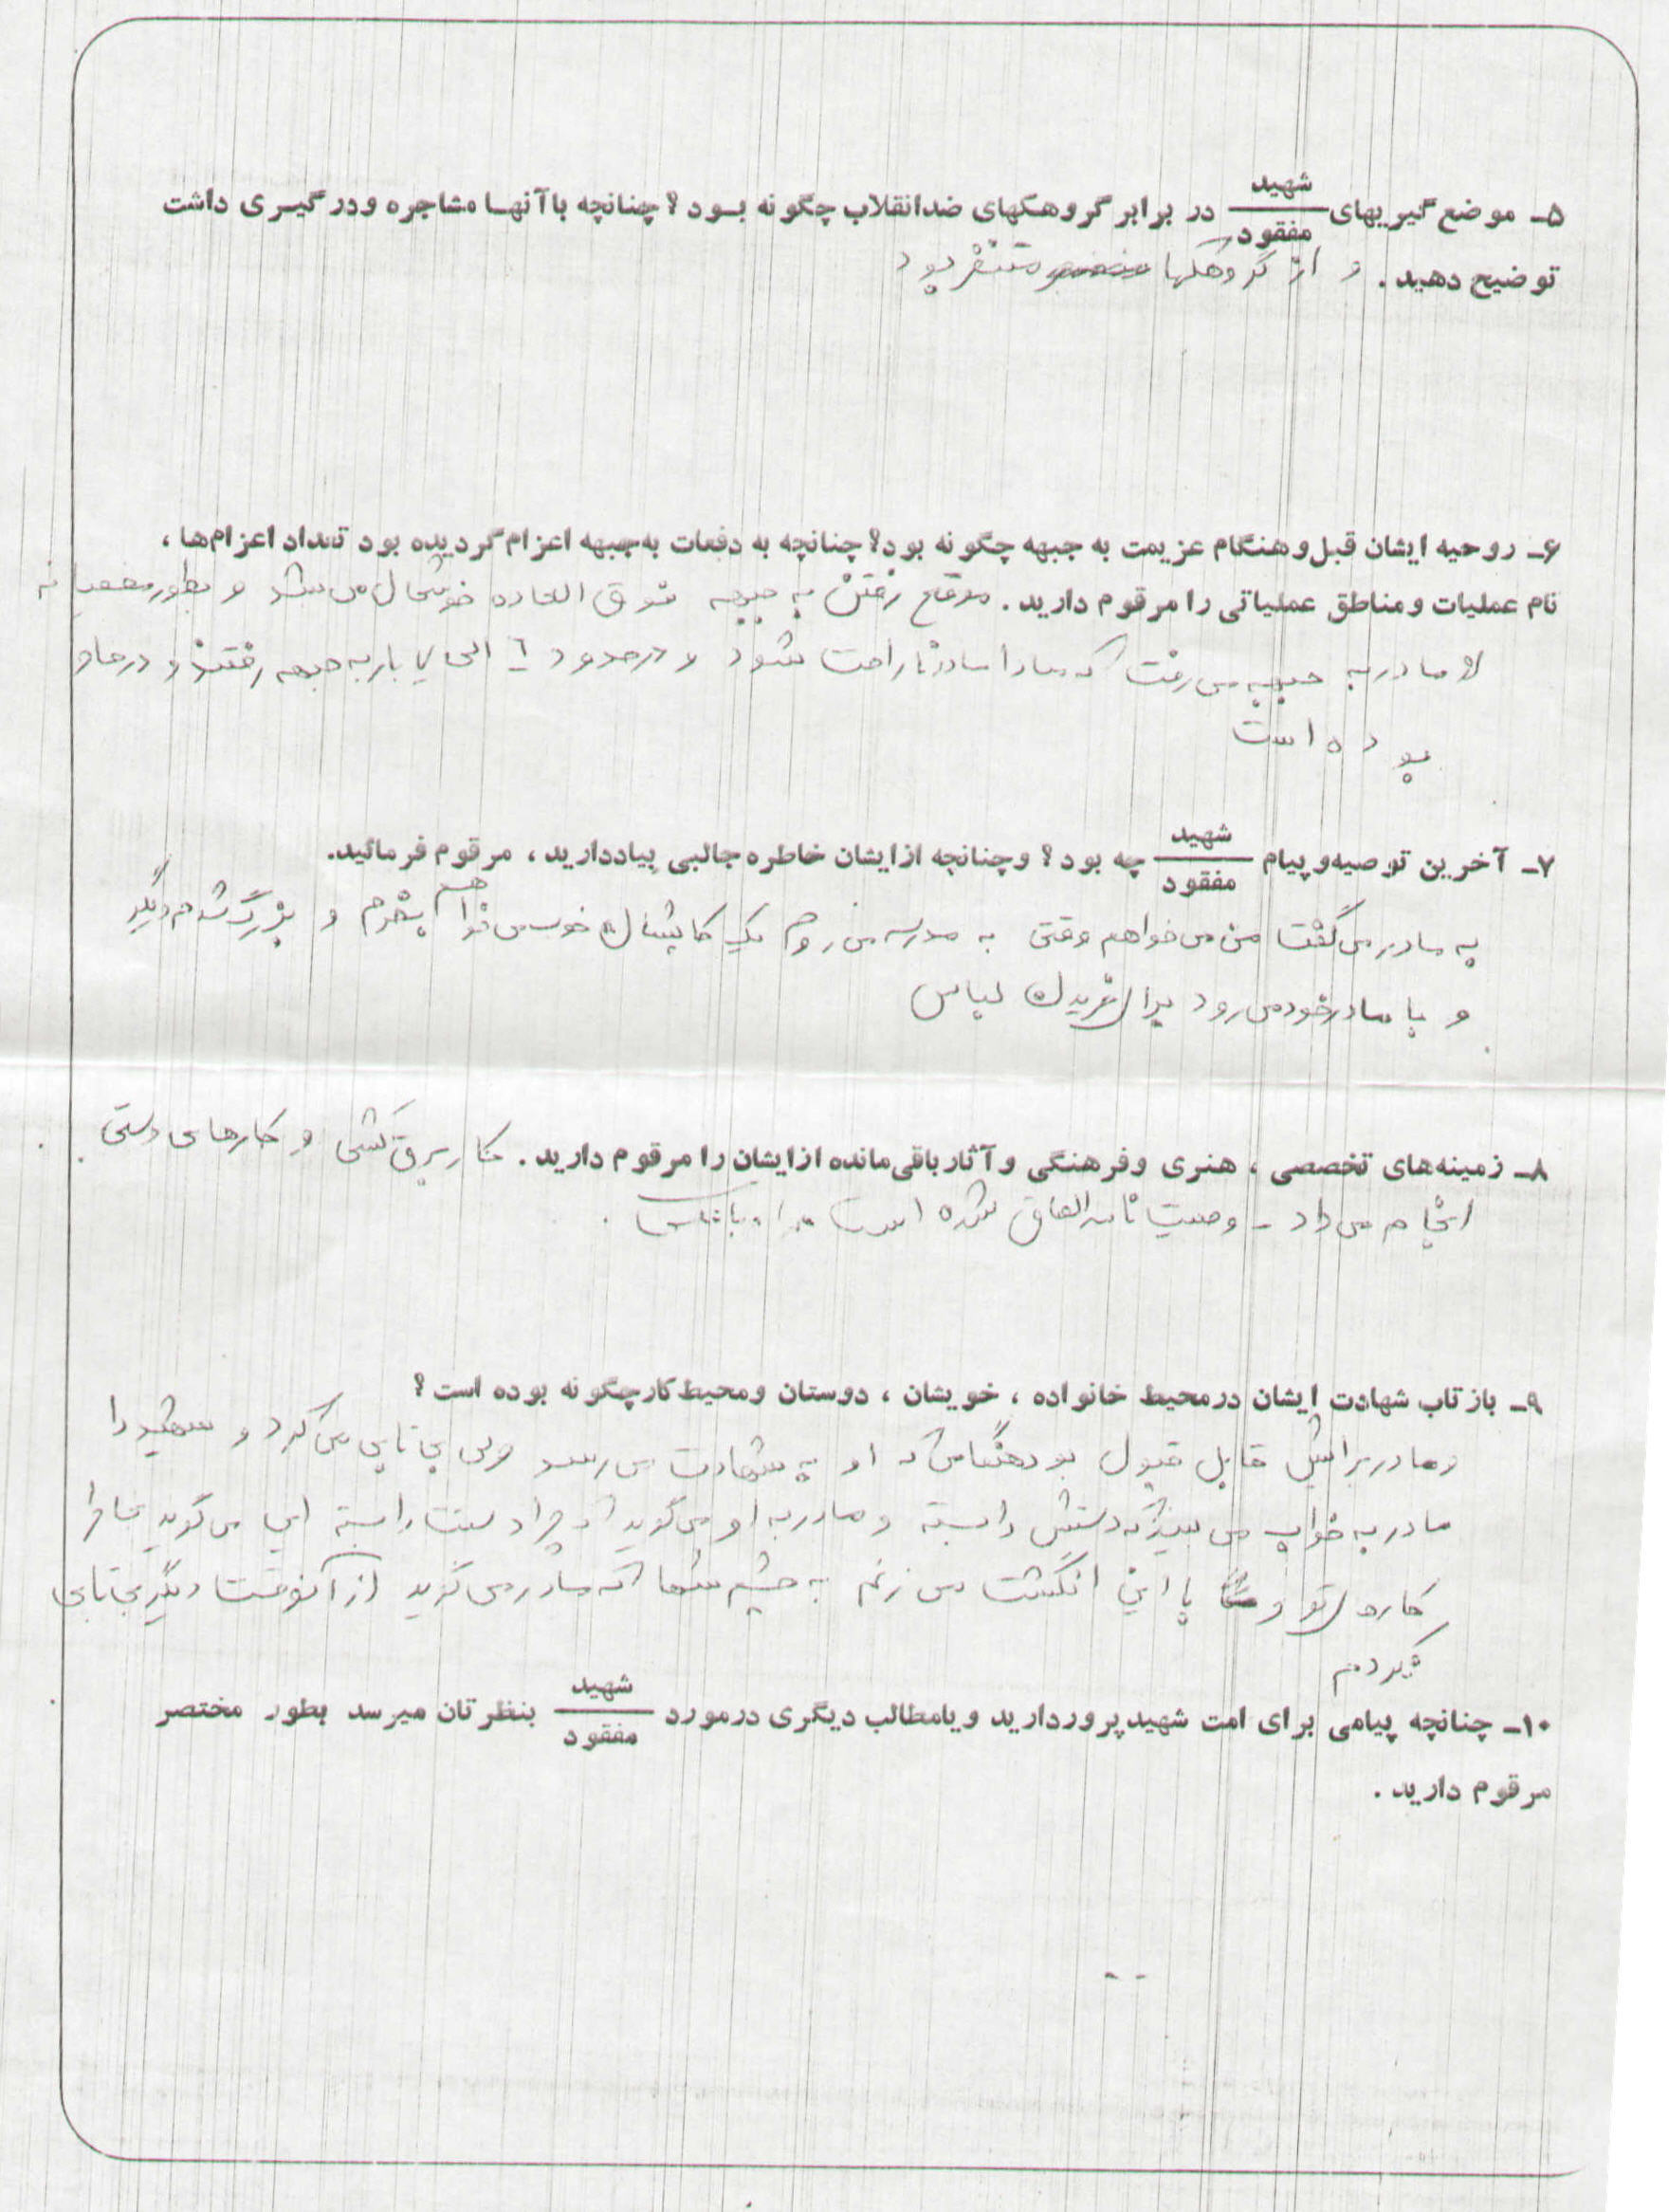 ۵ـ موضع گیریهای شهید/مفقود در برابر گروهکهای ضدانقلاب چگونه بود؟ چنانچه با آنها مشاجره و درگیری داشت
توضیح دهید. و از گروهکها متنفر بود
۶ـ روحیه ایشان قبل و هنگام عزیمت به جبهه چگونه بود؟ چنانچه به دفعات به جبهه اعزام گردیده بود تعداد اعزام‌ها،
نام عملیات و مناطق عملیاتی را مرقوم دارید. موقع رفتن به جبهه فوق العاده خوشحال می شد و بطور مخفیانه
از مادر به جبهه می رفت که مبادا مادر ناراحت شود و در حدود ٦ الی ۷ بار به جبهه رفتند و در
بوده است
۷ـ آخرین توصیه و پیام شهید/مفقود چه بود؟ و چنانچه از ایشان خاطره جالبی بیاد دارید، مرقوم فرمائید.
به مادر می گفت من می خواهم وقتی به مدرسه می روم یک کاپشن خوب می خواهم بخرم و بزرگ شدم دیگر
و با مادر خود می رود برای خریدن لباس
۸ـ زمینه‌های تخصصی، هنری و فرهنگی و آثار باقی‌مانده از ایشان را مرقوم دارید. کار برق کشی و کارهای دستی
انجام می داد ـ وصیت نامه الحاق شده است
۹ـ بازتاب شهادت ایشان در محیط خانواده، خویشان، دوستان و محیط کار چگونه بوده است؟
و مادر برایش قابل قبول بود هنگامی که او به شهادت می رسد ولی بی تابی می کرد و شهید را
مادر به خواب می بیند که دستش را بسته و مادر به او می گوید که چرا دستت را بسته ای می گوید بخاطر
کارهای تو و با این انگشت می زنم به چشم شما که مادر می گوید از آنوقت دیگر بی تابی
نکردم
۱۰ـ چنانچه پیامی برای امت شهیدپرور دارید و یا مطالب دیگری در مورد شهید/مفقود بنظرتان میرسد بطور مختصر
مرقوم دارید.